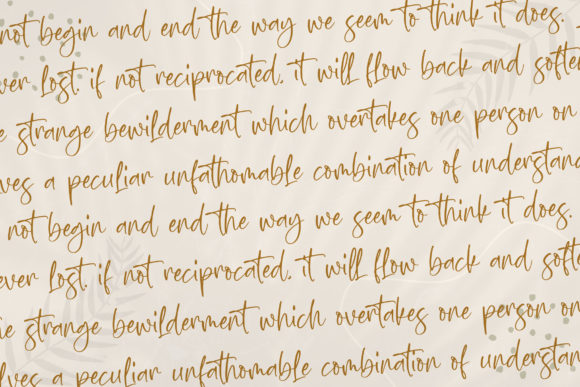 not begin and end the way we seem to think it does.
ver lost. if not reciprocated, it will flow back and soften
e strange bewilderment which overtakes one person on
ves a peculiar unfathomable combination of understand
not begin and end the way we seem to think it does.
ever lost. if not reciprocated, it will flow back and softe
he strange bewilderment which overtakes one person on
lves a peculiar unfathomable combination of understan